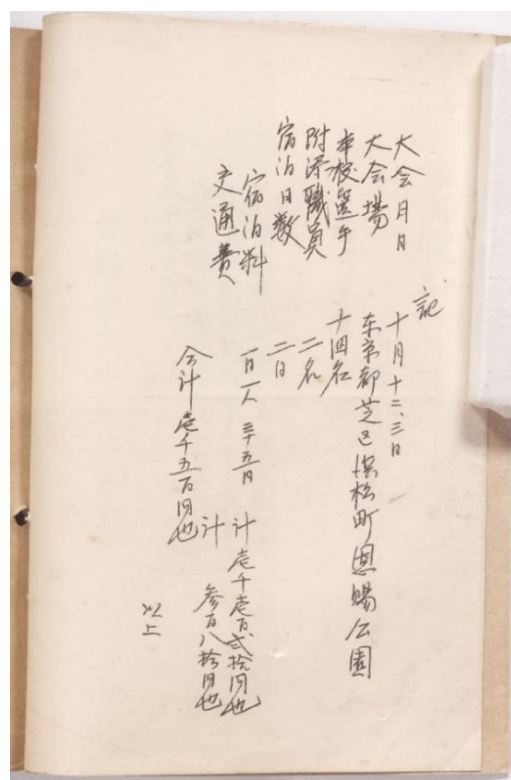 記
大会月日 十月十二、三日
大会場 东京都芝区濱松町恩賜公園
本校選手 十四名
附添職員 二名
宿泊日数 二日
宿泊料 一日一人 三十五円 計 壱千壱百弐拾円也
交通費 計 参百八拾円也
合計 壱千五百円也
以上